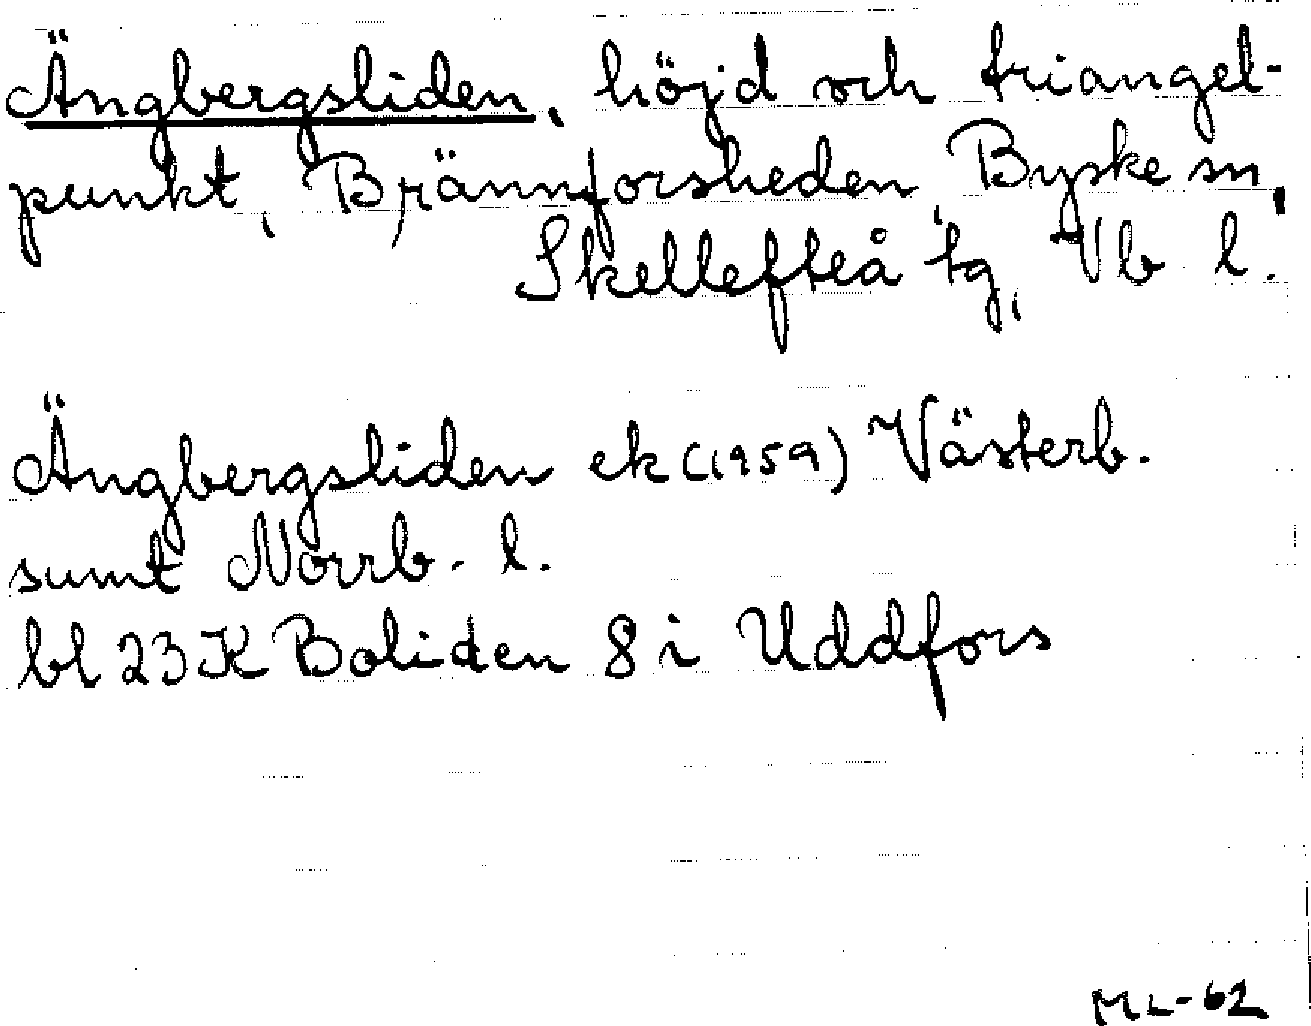 Ängbergsliden, höjd och triangel-
punkt, Brännforsheden, Byske sn,
Skellefteå tg, Vb l.
Ängbergsliden ek (1959) Västerb.
sumt Norrb. l.
bl 23 K Boliden 8 i Uddfors
ML-62